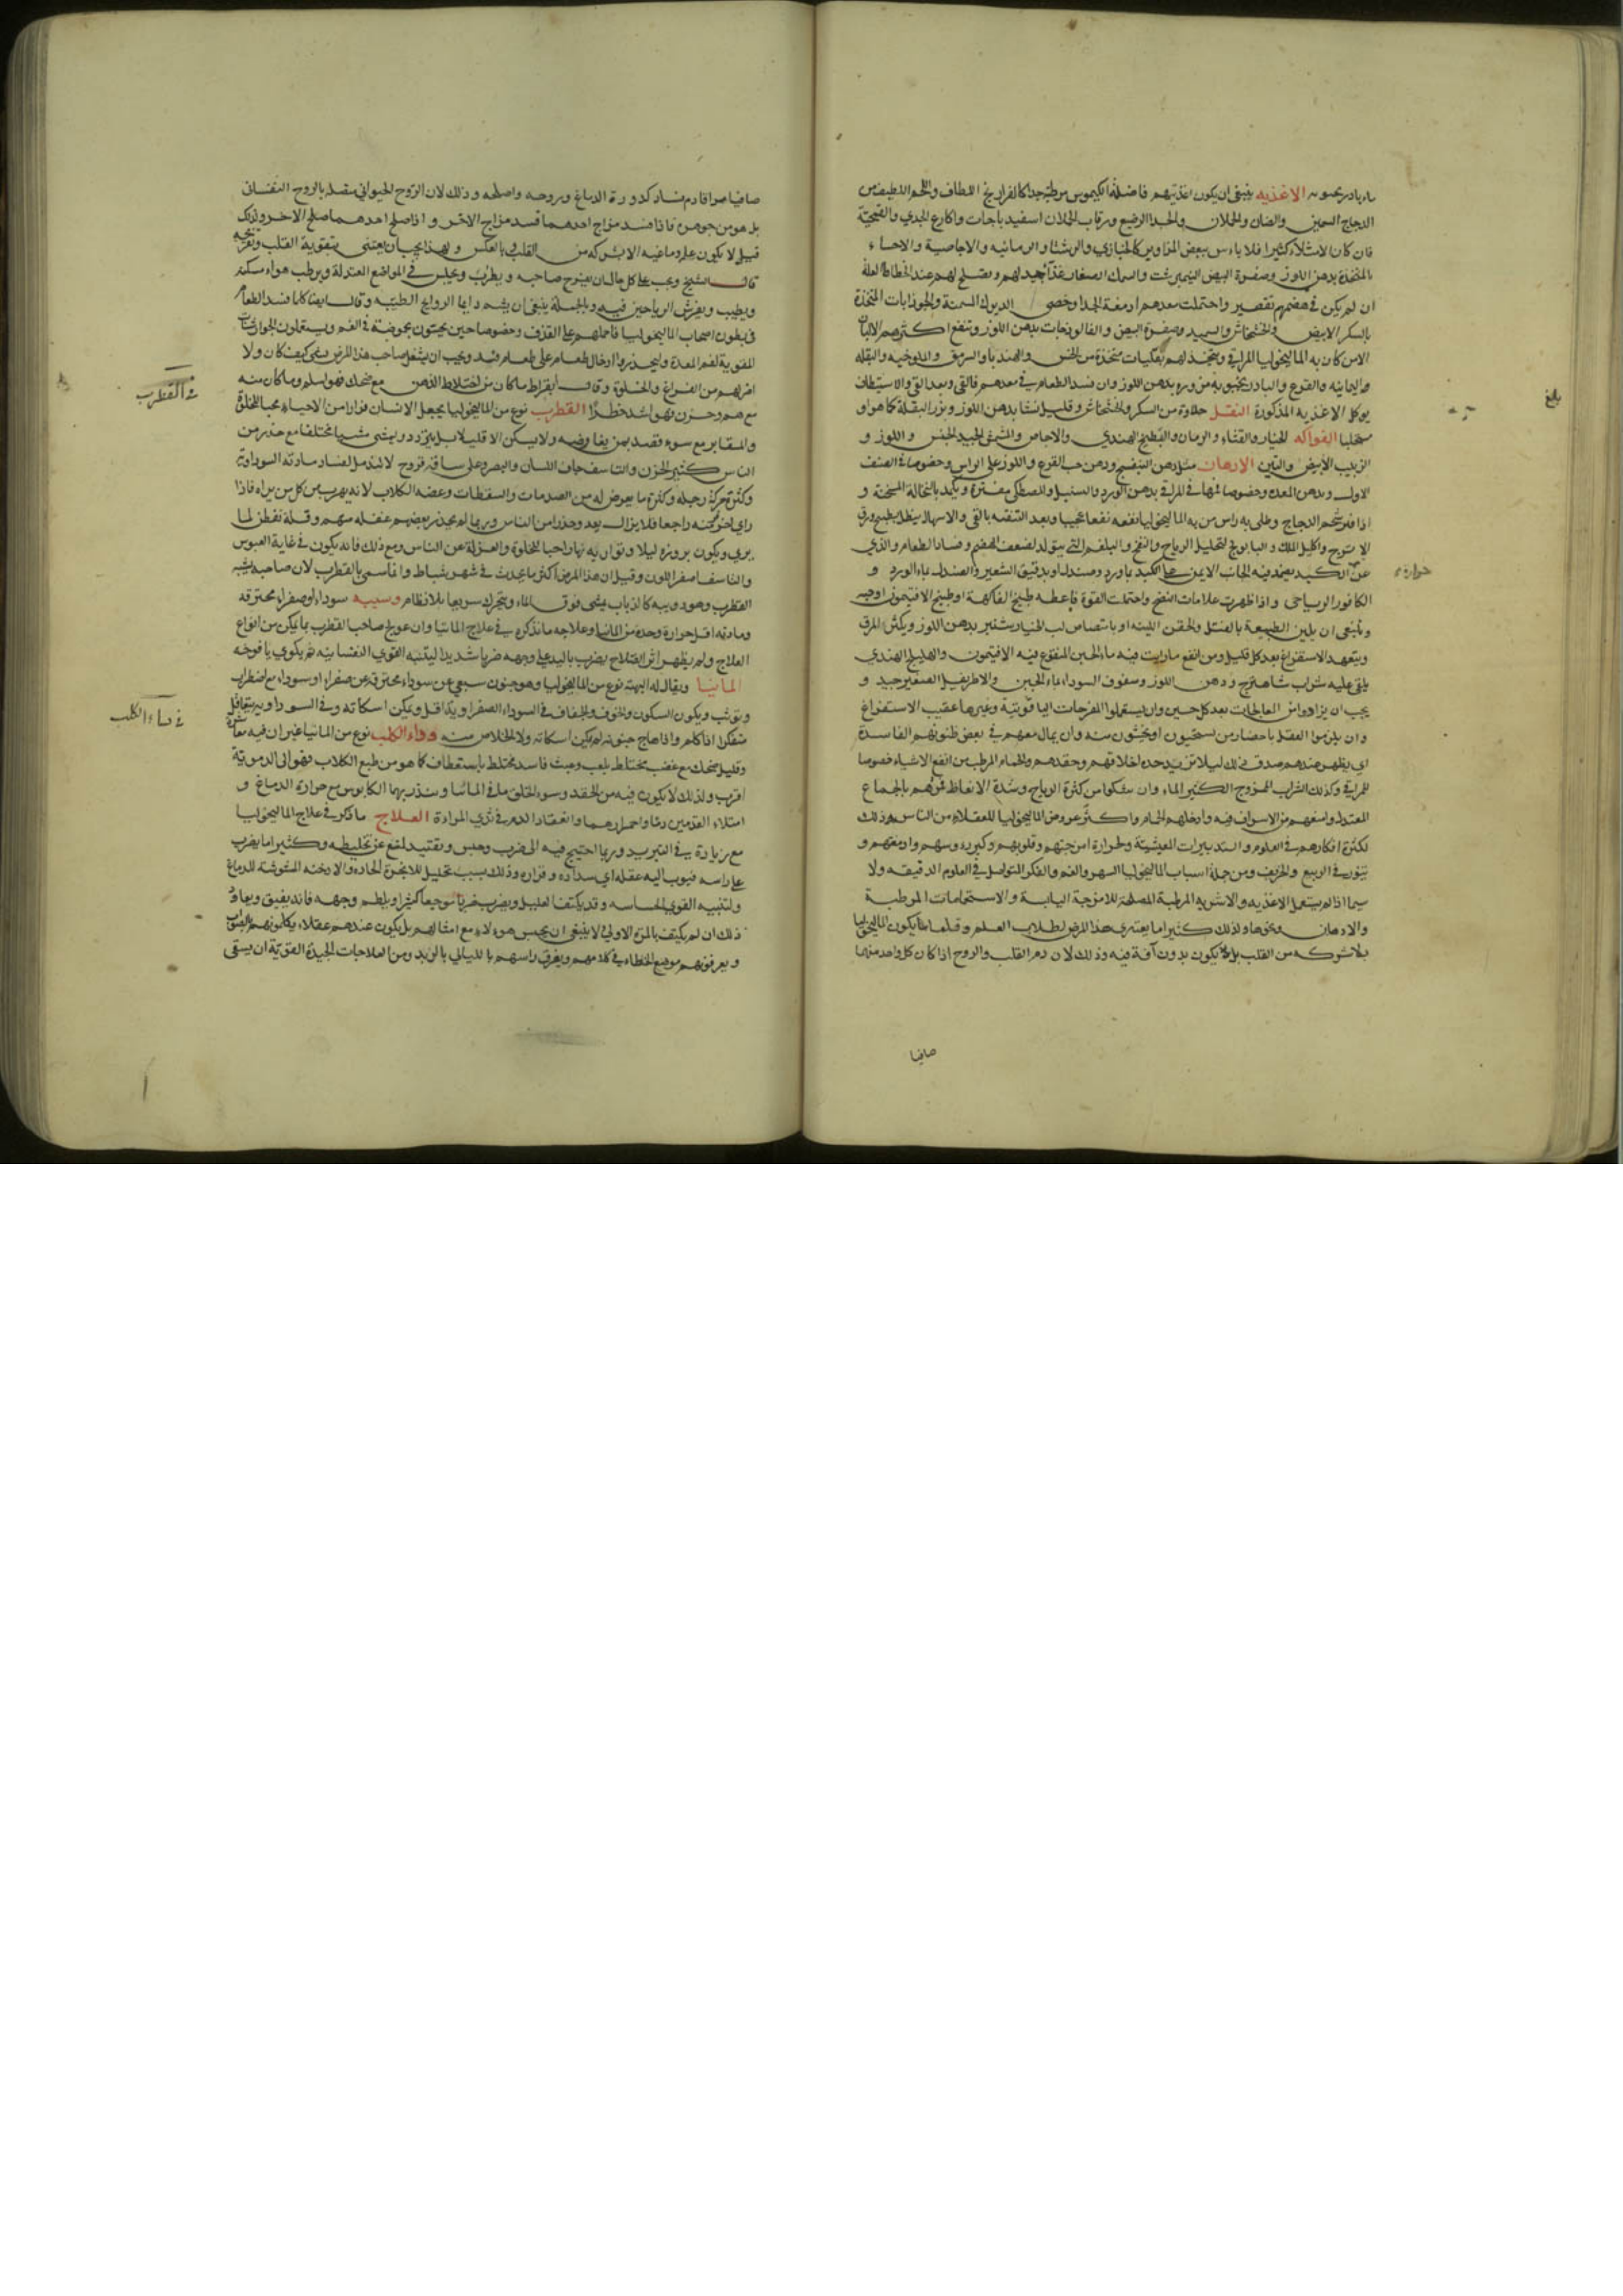 الاغذيه ينبغي ان يكون اغذيتهم فاضلة الكيموس مرطبة جدا كالفراريج اللطاف واللحم اللطيف من
الدجاج السمين والضان والحملان والجدا الرضيع ورقاب الحملان اسفيدباجات واكارع الجدي والقمحية
فان كان الامتلاء كثيرا فلا باس ببعض المزاوير كالخبازي والرشتا والرمانيه والاجاصية والاحساء
المتخذة بدهن اللوز وصفرة البيض النيمبرشت والسمك الصغار غذا جيد لهم ويصلح لهم عند انحطاط العلة
ان لم يكن في هضمهم تقصير واحتملت معدهم ادمغة الجدا وخصي الديوك المسمنة والجوذابات المتخذة
بالسكر الابيض والخشخاش والسميد وصفرة البيض والفالوذجات بدهن اللوز وتنفع اكثرهم الالبان
الا من كان به الماليخوليا المراقي ويتخذ لهم بقليات متخذة من الخس والهندبا والسرمق والملوخيه والبقله
اليمانيه والقرع والبادرنجبويه مزوره بدهن اللوز وان فسد الطعام في معدهم فالقي وبعد القي والاستيطان
يوكل الاغذيه المذكورة النقل حلاوة من السكر والخشخاش وقليل نشا بدهن اللوز وبزر البقلة كما هو او
مستحلبا الفواكه الخيار والقثاء والرمان والبطيخ الهندي والاجاص والمشمش الجيد الجنس واللوز و
الزبيب الابيض والتين الادهان مثل دهن البنفسج ودهن حب القرع واللوز على الراس وخصوصا في الصنف
الاول ودهن المعدة وخصوصا فمها في المراقي بدهن الورد والسنبل والمصطكي مفترة ويكمد بالنخالة المسخنة و
اذا فتر شحم الدجاج وطلي به راس من به الماليخوليا نفعه نفعا عجيبا وبعد التنقيه بالقي والاسهال ينطل بطبيخ ورق
الاترج واكليل الملك والبابونج لتحليل الرياح والنفخ والبلغم التي يتولد لضعف الهضم وفساد الطعام والذي
عن الكبد يضمد فيه الجانب الايمن على الكبد بماورد وصندل او بدقيق الشعير والصندل بماء الورد و
الكافور الرياحي واذا ظهرت علامات النضج واحتملت القوة فاعطه طبيخ الفاكهة او طبيخ الافتيمون او حبه
وينبغي ان يلين الطبيعة بالفتل والحقن اللينة او بامتصاص لب الخيارشنبر بدهن اللوز ويكثر المرق
ويتعهد الاستفراغ بعد كل قليل ومن انفع ما رايت فيه ماء الجبن المنقوع فيه الافتيمون والهليلج الهندي
يلقى عليه شراب شاهترج ودهن اللوز وسفوف السوداء بماء الجبن والاطريفل الصغير جيد و
يجب ان يزاد واثر العالجات بعد كل حين وان يستعملوا المفرحات الياقوتية وغيرها عقيب الاستفراغ
وان يلزموا العقل باحضار من يستحيون او يخشون منه وان يمال معهم في بعض ظنونهم الفاسدة
اي يظهر عندهم صدق ذلك ليلا تزيد حدة اخلاقهم وحقدهم والحمام المرطب من انفع الاشياء خصوصا
للمراقي وكذلك الشراب الممزوج الكثير الماء وان شكوا من كثرة الرياح وشدة الانعاظ فمرهم بالجماع
المعتدل وامنعهم من الاسراف فيه وادخلهم الحمام واكثر عروض الماليخوليا للعقلاء من الناس وذلك
لكثرة افكارهم في العلوم والتدبيرات المعيشية ولحرارة امزجتهم وقلوبهم وكبر روسهم وادمغتهم و
يثور في الربيع والخريف ومن جملة اسباب الماليخوليا السهر والغم والفكر المتواصل في العلوم الدقيقه ولا
سيما اذا لم يستعمل الاغذيه والاشربه المرطبة المصلحة للامزجة اليابسة والاستحمامات المرطبة
والادهان ونحوها ولذلك كثيرا ما يعتري هذا المرض لطلاب العلم وقلما يكون الماليخوليا
بلا شركه من القلب بل لا يكون بدون آفة فيه وذلك لان دم القلب والروح اذا كان كل واحد منهما
صافيا
بلغ
حرارة
صافيا صرفا قاوم فساد كدورة الدماغ وروحه واصلحه وذلك لان الروح الحيواني متصل بالروح النفساني
بل هو من جوهره فاذا فسد مزاج احدهما فسد مزاج الاخر واذا صلح احدهما صلح الاخر ولذلك
قيل لا يكون علة دماغيه الا بشركه من القلب وبالعكس ولهذا يجب ان يعتني بتقوية القلب وتفريحه
قال الشيخ ويجب على كل حال ان يفرح صاحبه ويطرب ويجلس في المواضع المعتدلة ويرطب هواء مسكنه
ويطيب ويفرش الرياحين فيه وبالجملة ينبغي ان يشم دايما الروايح الطيبه وقال ايضا كلما فسد الطعام
في بطون اصحاب الماليخوليا فاحملهم على القذف وخصوصا حين يحسون بحموضة في الفم ويستعملون الجوارشنات
المقوية لفم المعدة وليحذروا ادخال طعام على طعام فسد ويجب ان يشغل صاحب هذا المرض بشي كيف كان ولا
اضر لهم من الفراغ والخلوة وقال ابقراط ما كان من اختلاط الذهن مع ضحك فهو اسلم وما كان منه
مع هم وحزن فهو اشد خطرا القطرب نوع من الماليخوليا يجعل الانسان فرارا من الاحياء محبا للخلوة
والمقابر مع سوء قصد بمن يغافصه ولا يسكن الا قليلا بل يتردد ويمشي مشيا مختلفا مع حذر من
الناس كثير الحزن والتاسف جاف اللسان والبصر وعلى ساقيه قروح لا تندمل لفساد مادته السوداوية
وكثرة حركة رجله وكثرة ما يعرض له من الصدمات والسقطات وعضه الكلاب لانه يهرب من كل من يراه فاذا
راي اخر تجنبه راجعا فلا يزال يعد وحذرا من الناس وربما لم يحذر بعضهم غفلة منهم وقلة تفطن لما
يري ويكون بروزه ليلا وتواريه نهارا حبا للخلوة والعزلة عن الناس ومع ذلك فانه يكون في غاية العبوس
والتاسف اصفر اللون وقيل ان هذا المرض اكثر ما يحدث في شهر شباط وانما سمي بالقطرب لان صاحبه يشبه
القطرب وهو دويبه كالذباب يمشي فوق الماء ويتحرك سريعا بلا نظام وسببه سوداء او صفراء محترقه
ومادته اقل حرارة وحدة من المانيا وعلاجه ما نذكره في علاج المانيا وان عولج صاحب القطرب بما يمكن من انواع
العلاج ولم يظهر اثر الصلاح يضرب باليد على وجهه ضربا شديدا ليتنبه القوي النفسانية ثم يكوي يافوخه
المانيا ويقال له نوع من الماليخوليا وهو جنون سبعي عن سوداء محترقة عن صفراء او سوداء مع اضطراب
وتوثب ويكون السكون والخوف والجفاف في السوداء الصفراويه اقل ويمكن اسكاته وفي السوداويه يتغافل
متفكرا اذا كلم واذا هاج جنونه لم يمكن اسكاته ولا الخلاص منه وداء الكلب نوع من المانيا غير ان فيه معاشرة
وقليل ضحك مع غضب مختلط بلعب وعبث فاسد مختلط باستعطاف كما هو من طبع الكلاب فهو الى الدموية
اقرب ولذلك لا يكون فيه من الحقد وسوء الخلق ما في المانيا وينذر بهما الكابوس مع حرارة الدماغ و
امتلاء القدمين دما واحمرارهما وانعقاد الدم في ثدي المراة العلاج ما ذكر في علاج الماليخوليا
مع زيادة في التبريد وربما احتيج فيه الى ضرب وحبس وتقييد لمنع عن تخليطه وكثيرا ما يضرب
على راسه فيوب اليه عقله اي سداده وقراره وذلك بسبب تحليل للابخرة الحاده والادخنه المشوشة للدماغ
ولتنبيه القوي الحساسه وقد يكتف العليل ويضرب ضربا موجعا كثيرا ويلطم وجهه فانه يفيق ويعاود
ذلك ان لم يكتف بالمرة الاولي لا ينبغي ان يحبس هولاء مع امثالهم بل يكون عندهم عقلاء يكلمونهم بالصواب
ويعرفونهم موضع الخطاء في كلامهم ويغرق راسهم بالليالي بالزبد ومن العلاجات الجيدة القوية ان يسقى
في القطرب
في داء الكلب